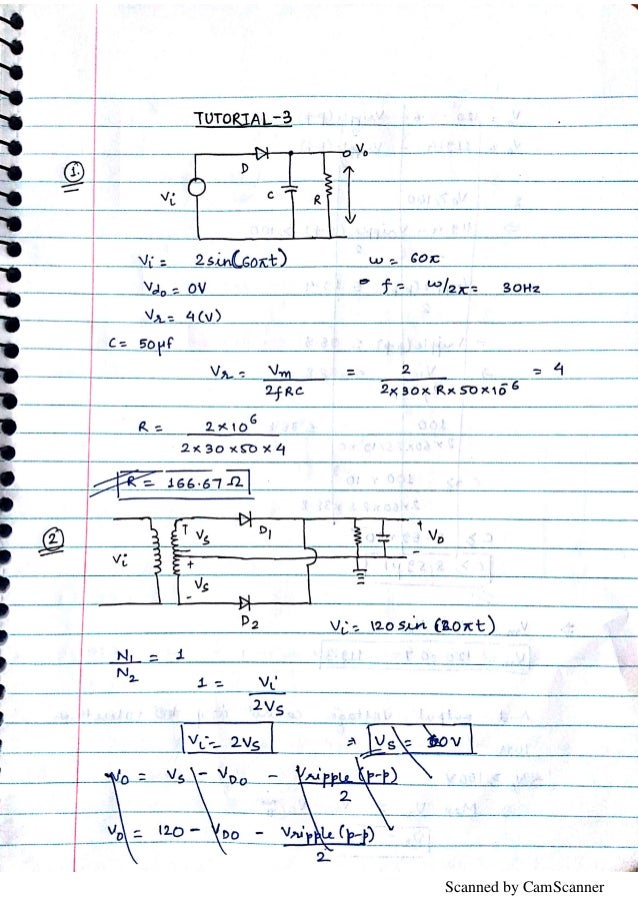 TUTORIAL-3
1.
D
Vo
Vi
C
R
Vi = 2sin(60πt)
ω = 60π
Vdo = 0V
f = ω/2π = 30Hz
Vr = 4(V)
C = 50μf
Vr = Vm / 2fRC = 2 / 2×30×R×50×10^-6 = 4
R = 2×10^6 / 2×30×50×4
R = 166.67Ω
2
Vi
Vs
D1
+
Vo
-
+
Vs
-
D2
Vi = 120 sin (120πt)
N1/N2 = 1
1 = Vi / 2Vs
Vi = 2Vs
⇒ Vs = 60V
Vo = Vs - VDO - Vripple(p-p) / 2
Vo = 120 - VDO - Vripple(p-p) / 2
Scanned by CamScanner